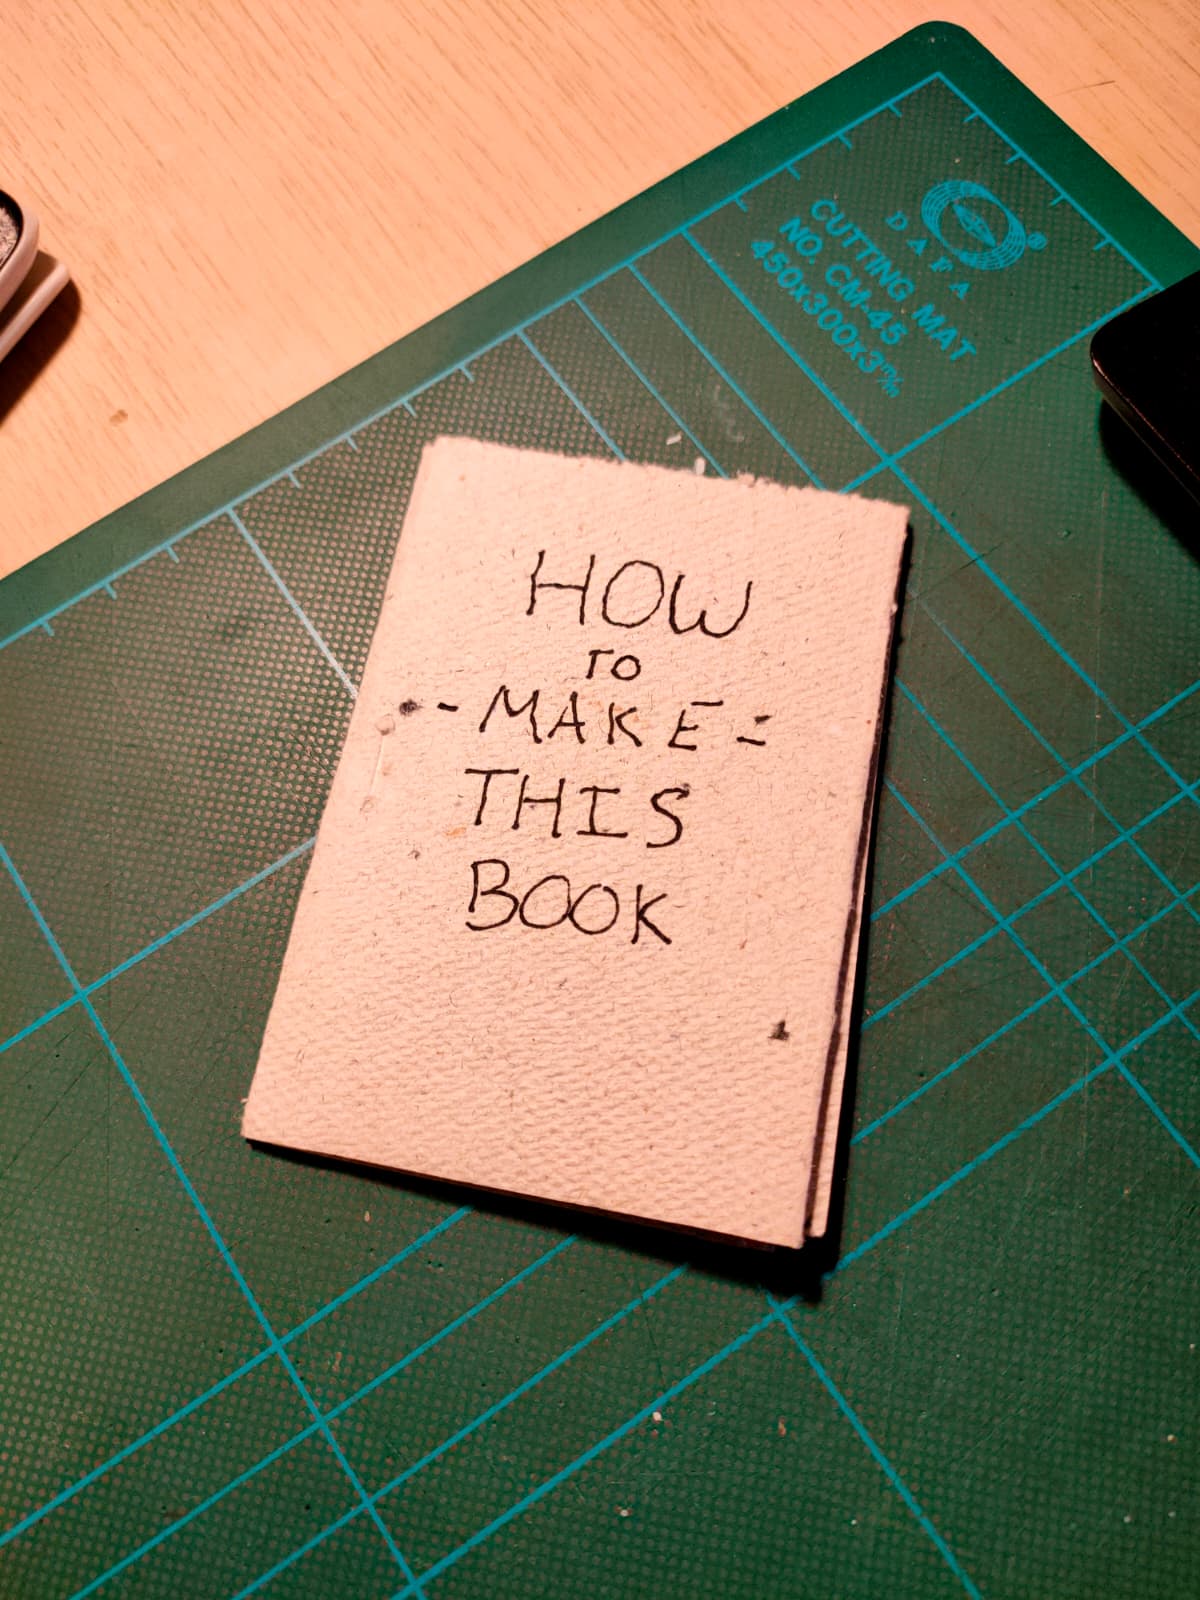 DAFA®
CUTTING MAT
NO. CM-45
450x300x3m/m
HOW
TO
- MAKE =
THIS
BOOK